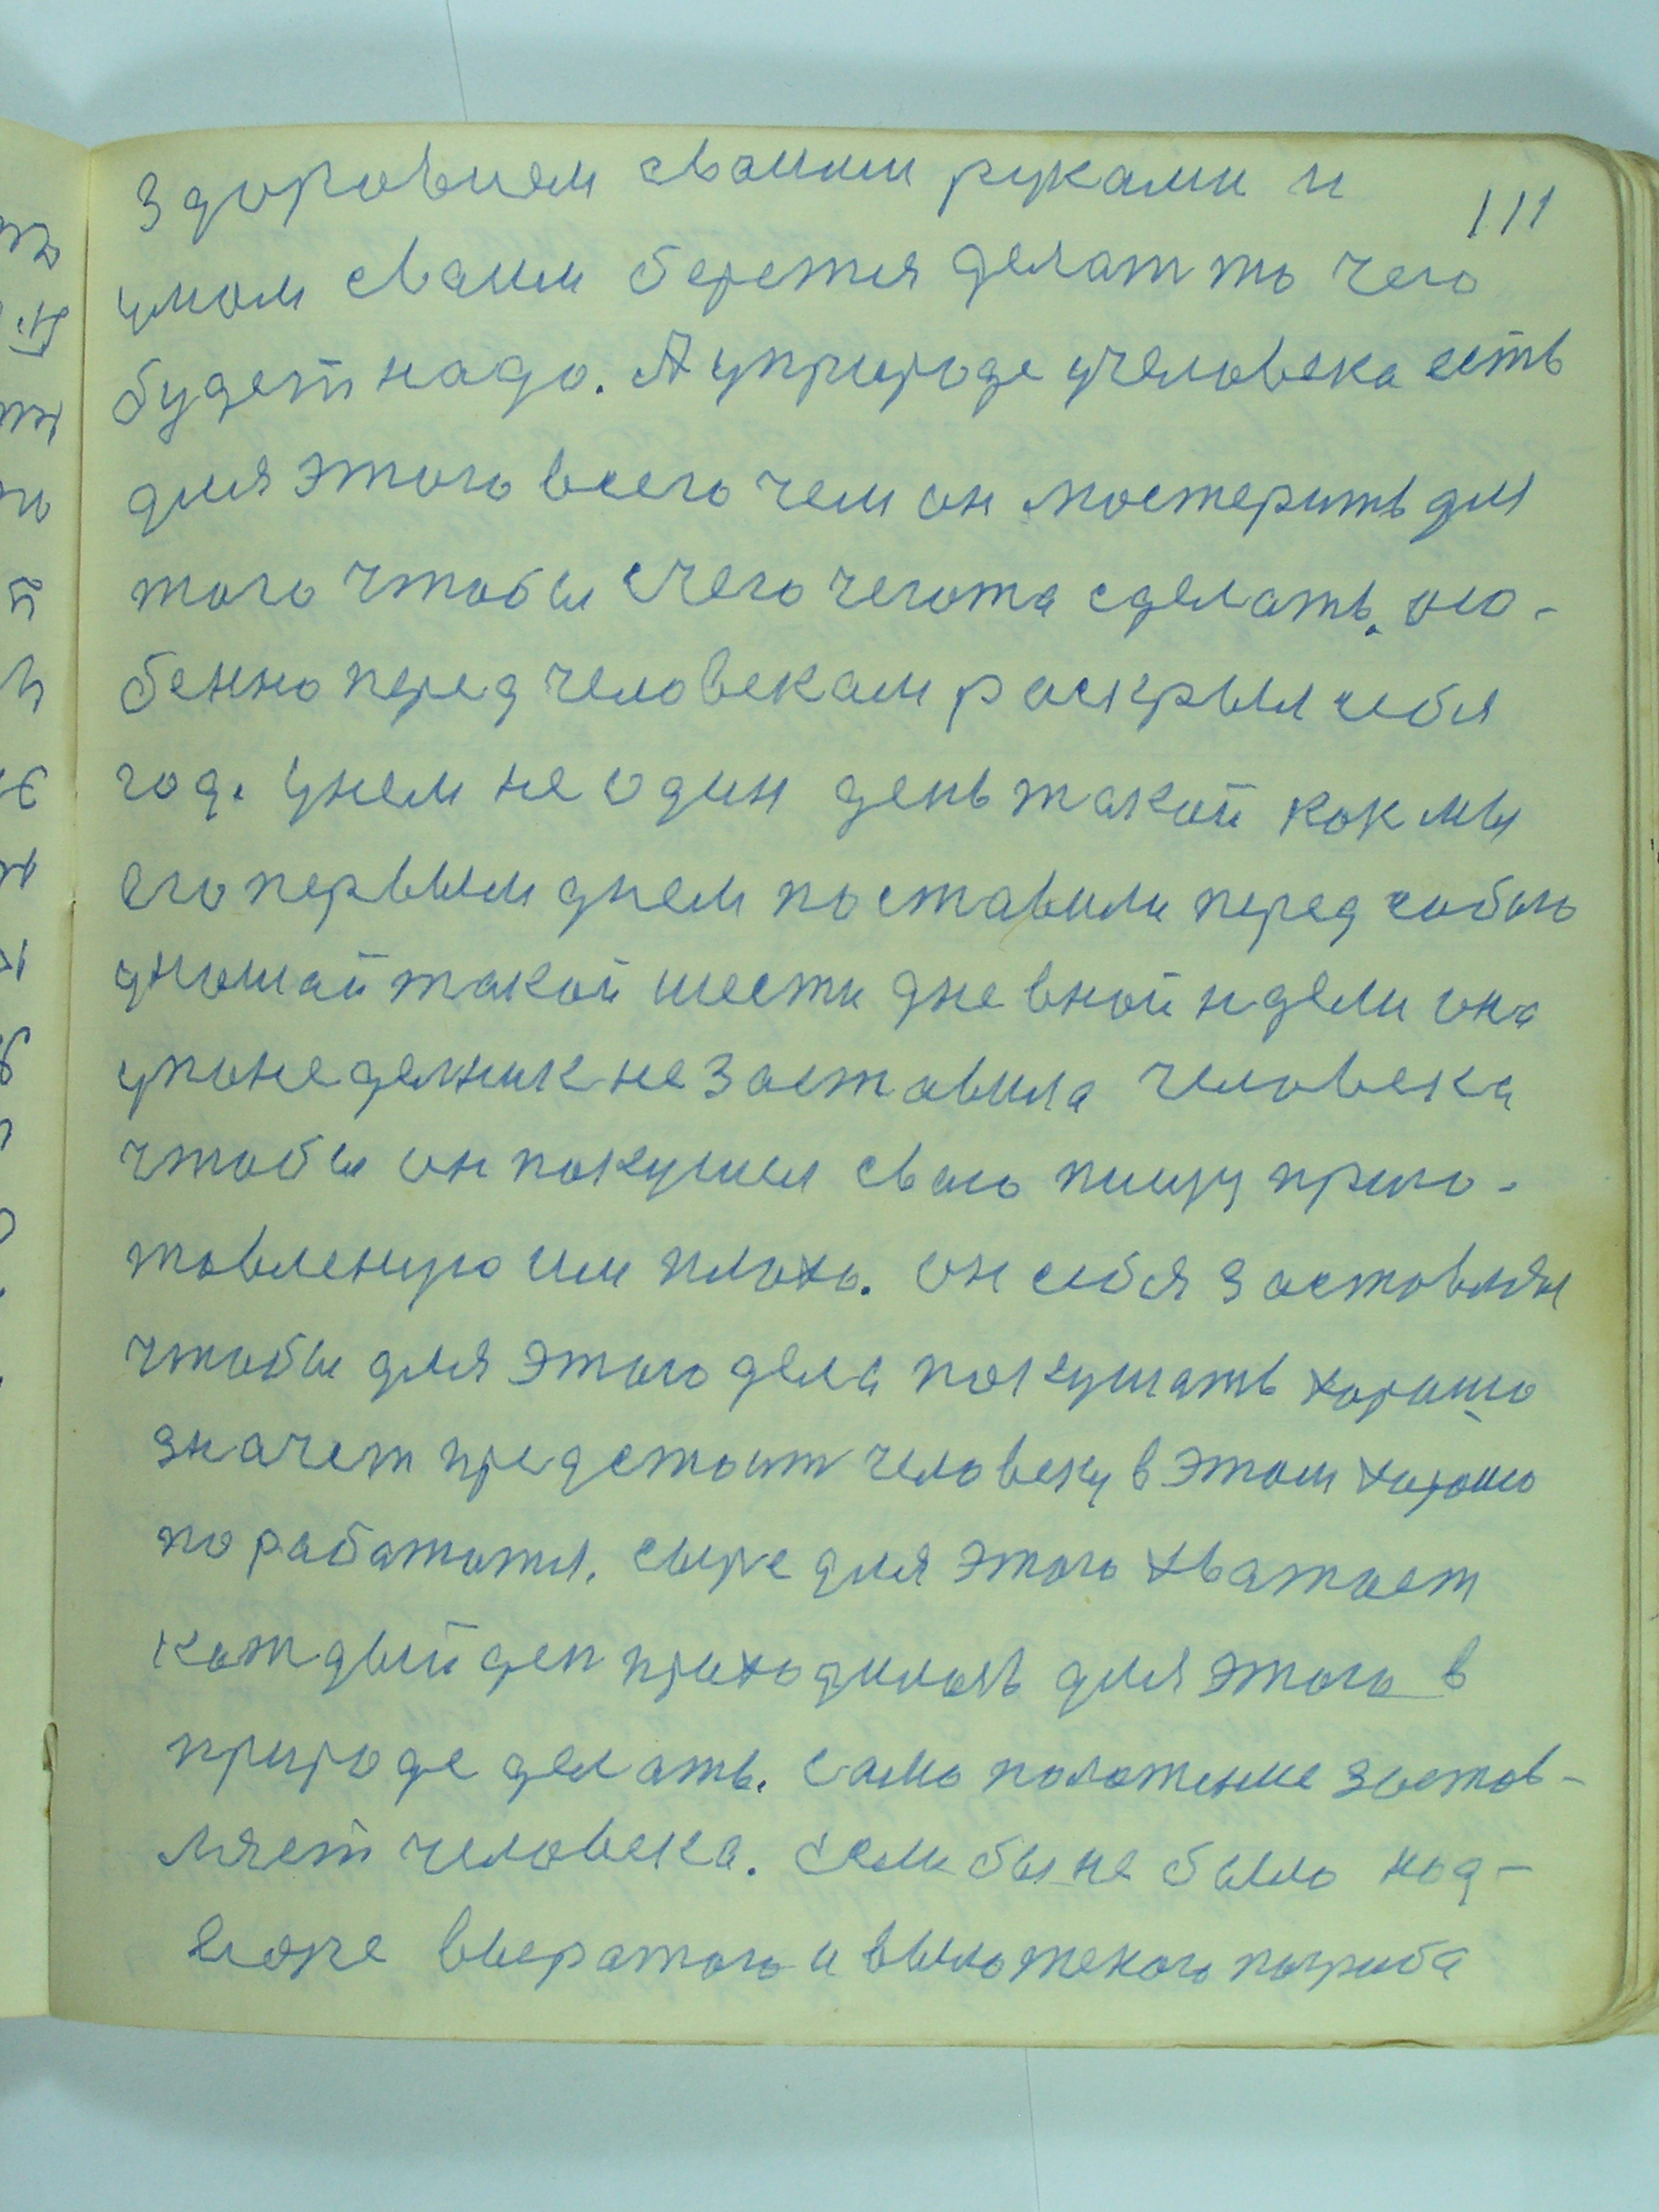 здоровием своими руками и
111
умом своим берется делат то чего
будет надо. А уприроде учеловека есть
для этого всего чем он мостерить для
того чтобы счего чегото сделать. осо-
бенно перед человекам раскрыл себя
год. унем не один день такой как мы
его первым днем поставили перед собою
такой шести дневной ндели она
упонеделник не заставила человека
чтобы он покушал свою пищу приго-
товленую им плохо. он себя заставлял
чтобы для этого дела покушать хорошо
значет предстоит человеку в этом хорошо
поработотя. сыре для этого хватает
каждый ден приходилось для этого в
природе делать. само положение застав-
ляет человека. если бы не было над-
воре и